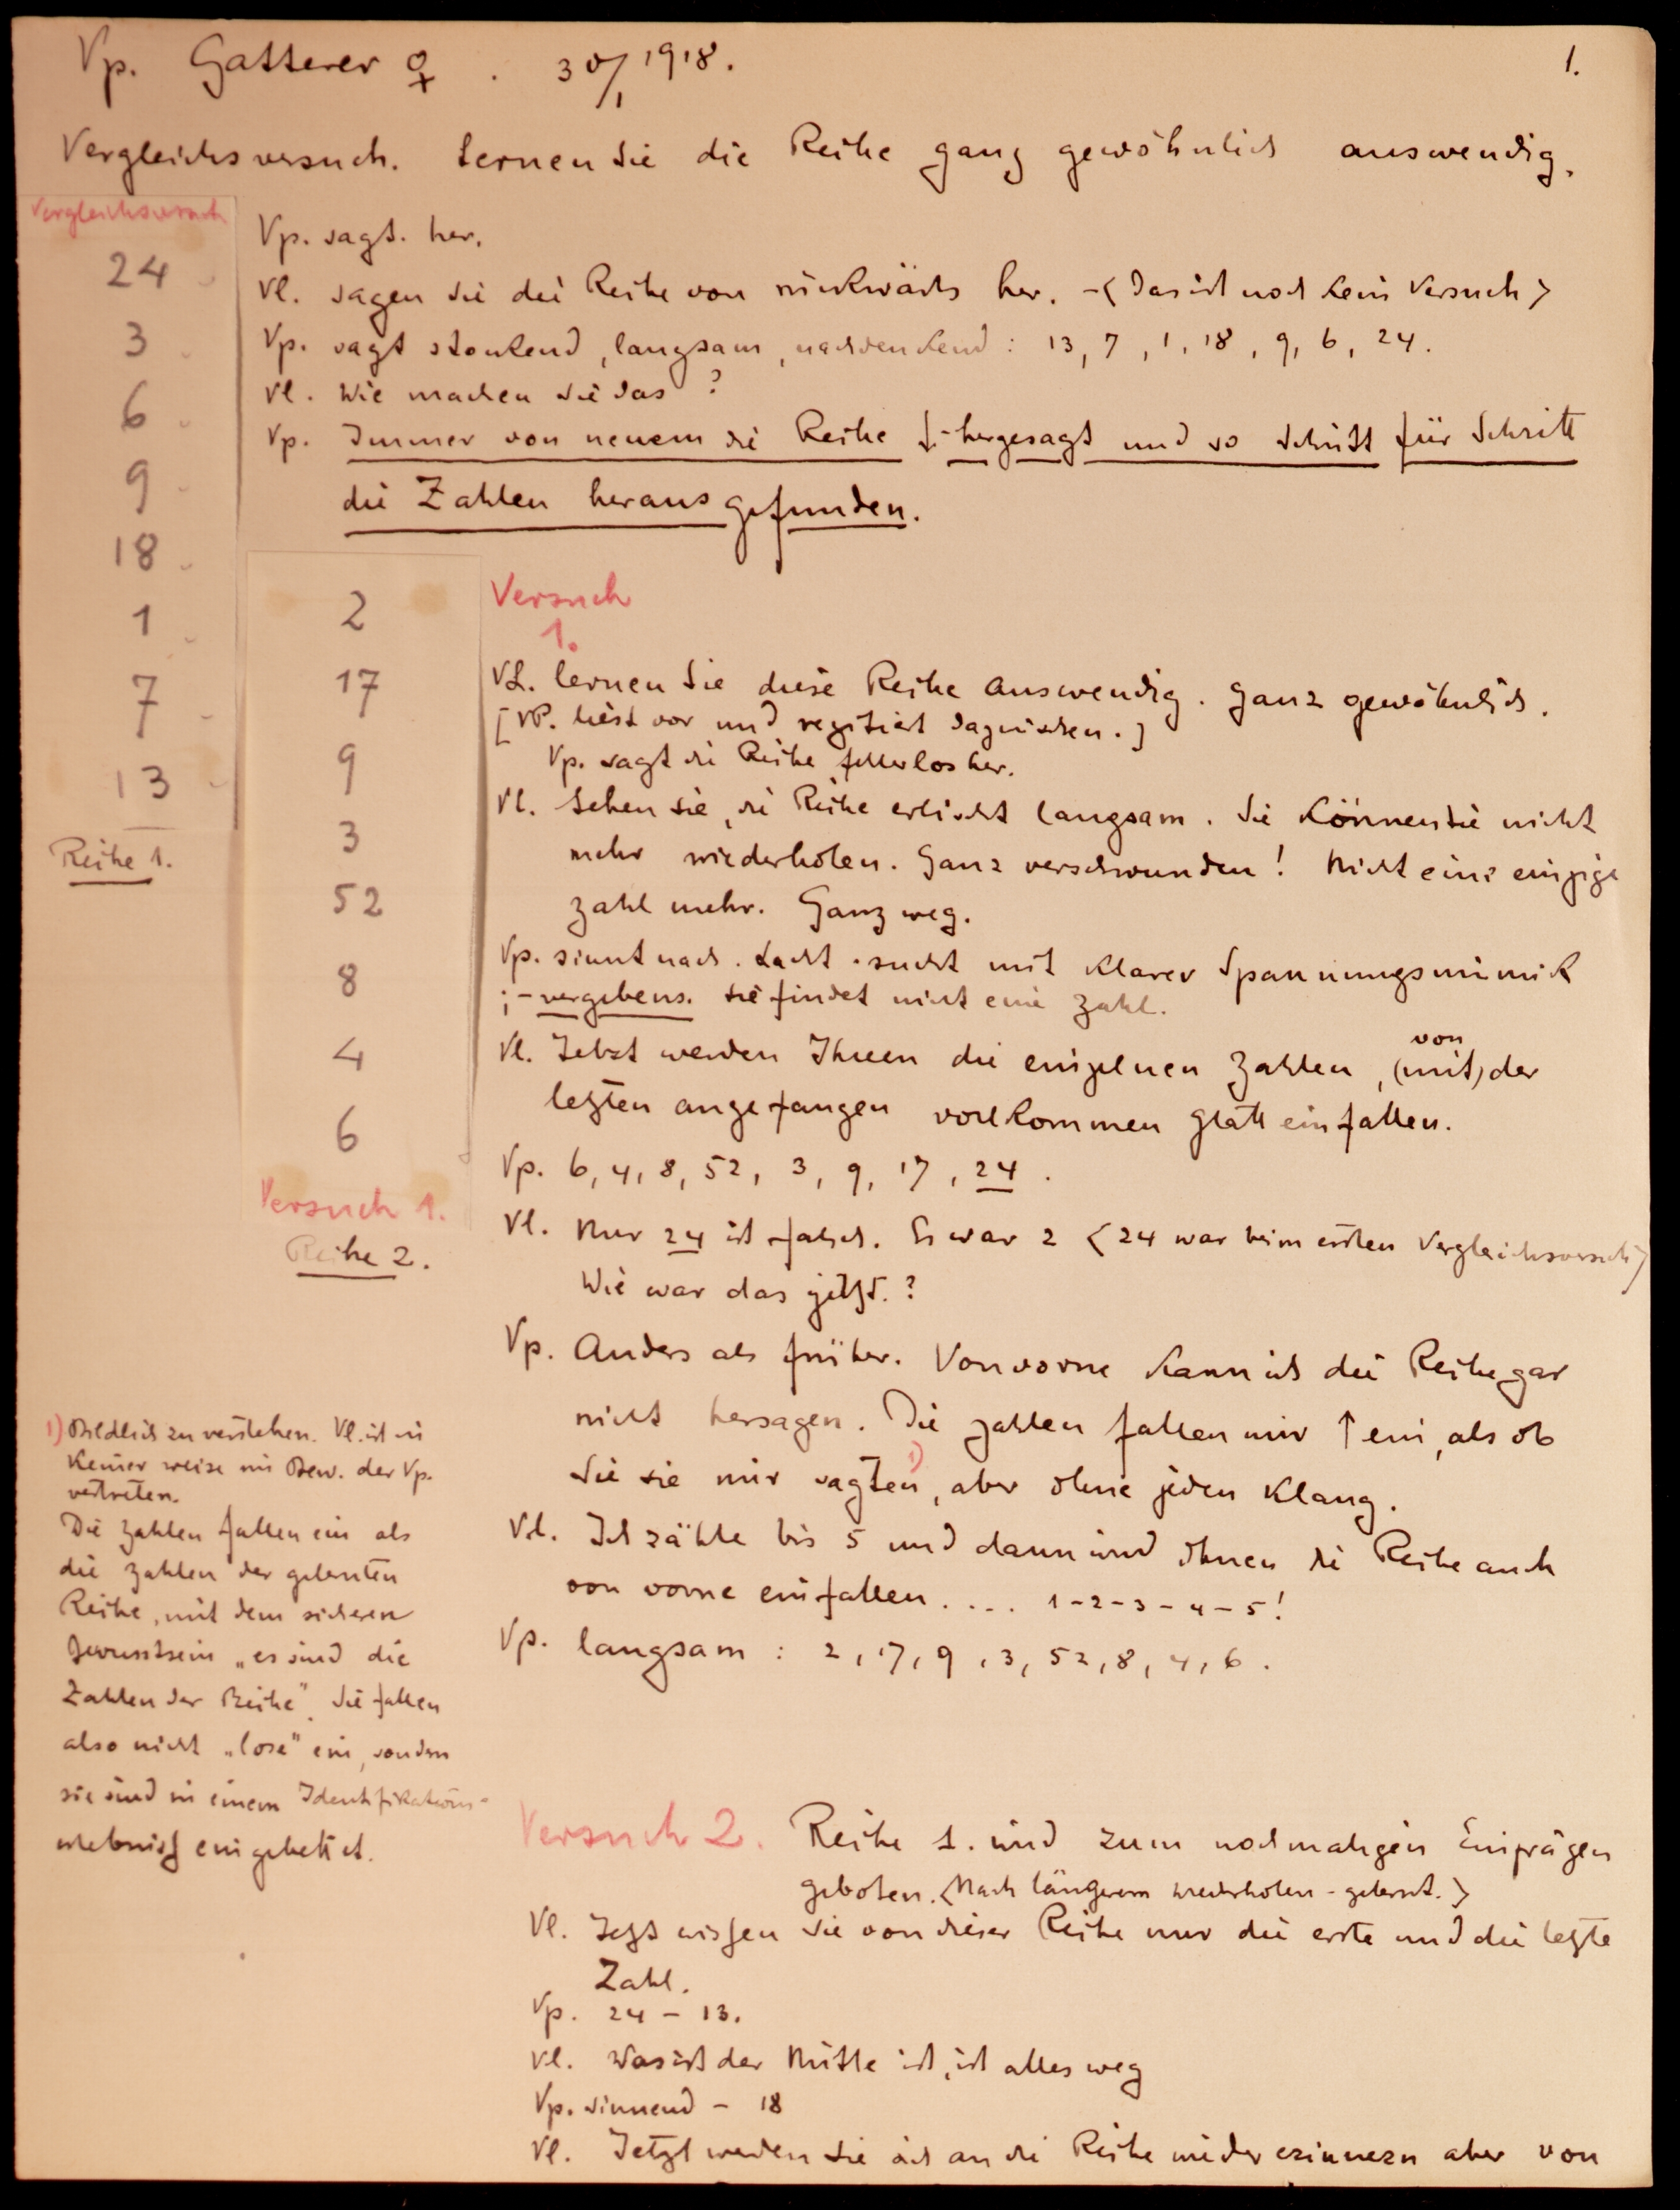 Vp. Gatterer ♀ . 30/1 1918.
1.
Vergleichsversuch. Lernen Sie die Reihe ganz gewöhnlich auswendig.
Vergleichsversuch
24
3
6
9
18
1
7
13
Reihe 1.
Vp. sagt. her.
Vl. sagen Sie die Reihe von rückwärts her. –<Das ist noch kein Versuch>
Vp. sagt stockend, langsam, nachdenkend : 13, 7, 1, 18, 9, 6, 24.
Vl. Wie machen Sie das ?
Vp. Immer von neuem die Reihe hergesagt und so Schritt für Schritt
die Zahlen herausgefunden.
2
17
9
3
52
8
4
6
Versuch 1.
Reihe 2.
Versuch
1.
VL. lernen Sie diese Reihe auswendig. Ganz gewöhnlich.
[VP. liest vor und rezitiert dazwischen.]
Vp. sagt die Reihe fehlerlos her.
Vl. Sehen Sie, die Reihe erlischt langsam. Sie können sie nicht
mehr wiederholen. Ganz verschwunden! Nicht eine einzige
Zahl mehr. Ganz weg.
Vp. sinnt nach. Lacht. sucht mit klarer Spannungsmimik
; – vergebens. Sie findet nicht eine Zahl.
Vl. Jetzt werden Ihnen die einzelnen Zahlen, (mit) von der
letzten angefangen vollkommen glatt einfallen.
Vp. 6, 4, 8, 52, 3, 9, 17, 24.
Vl. Nur 24 ist falsch. Es war 2 <24 war beim ersten Vergleichsversuch>
Wie war das jetzt. ?
Vp. Anders als früher. Von vorne kann ich die Reihe gar
nicht hersagen. Die Zahlen fallen mir ↑ ein, als ob
Sie sie mir sagten 1), aber ohne jeden Klang.
Vl. Ich zähle bis 5 und dann wird Ihnen die Reihe auch
von vorne einfallen. ... 1-2-3-4-5!
Vp. langsam : 2, 17, 9, 3, 52, 8, 4, 6.
1) Bildlich zu verstehen. Vl. ist in
keiner weise im Bew. der Vp.
vertreten.
Die Zahlen fallen ein als
die Zahlen der gelernten
Reihe, mit dem sicheren
Bewusstsein „es sind die
Zahlen der Reihe". Sie fallen
also nicht „lose" ein, sondern
sie sind in einem Identifikations-
erlebniss eingebettet.
Versuch 2. Reihe 1. wird zum nochmaligen Einprägen
geboten. <Nach längerem Wiederholen - gelernt.>
Vl. Jetzt wissen Sie von dieser Reihe nur die erste und die letzte
Zahl.
Vp. 24 – 13.
Vl. Was in der Mitte ist, ist alles weg
Vp. sinnend – 18
Vl. Jetzt werden Sie sich an die Reihe wieder erinnern aber von